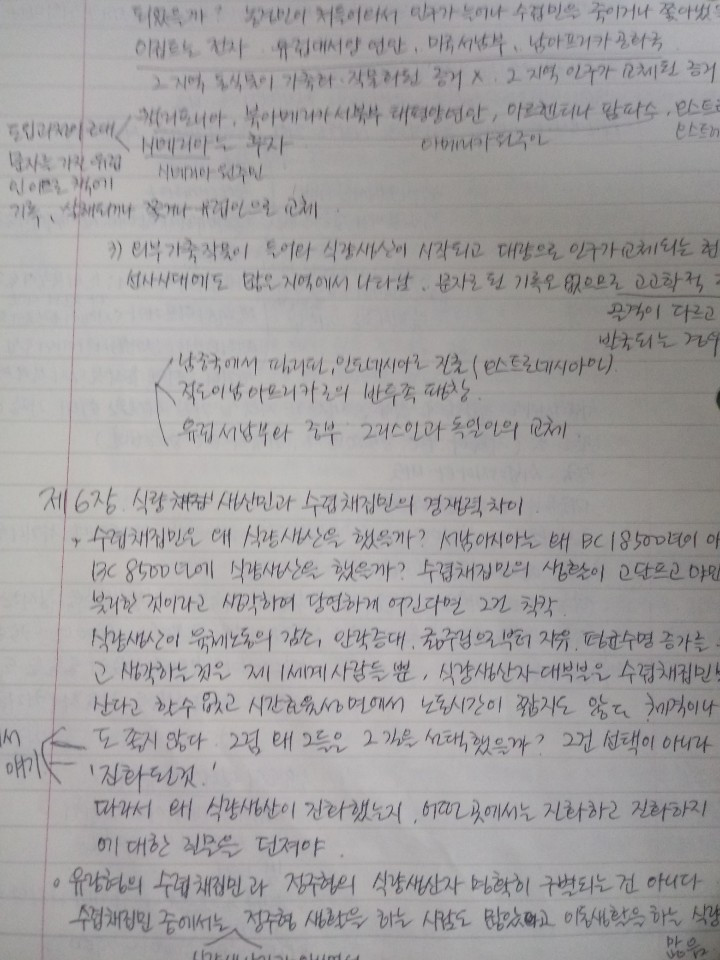 피웠을까? 농경민이 쳐들어와서 인구가 늘어나 수렵민을 죽이거나 쫓아냈을
이집트는 전자 유럽대서양 연안, 미국서남부, 남아프리카 공화국
2 지역 동식물이 가축화·작물화된 증거 X. 2 지역 인구가 교체된 증거
캘리포니아, 북아메리카 서북부 태평양연안, 아르헨티나 팜파스, 오스트
도입과정이 근대 나메거아는 후자 아메리카 원주민
나메거아 원주민
기록, 살해되거나 쫓겨나 유럽인으로 교체.
3) 외부 가축작물이 들어와 식량생산이 시작되고 대량으로 인구가 교체되는 현
선사시대에도 많은 지역에서 나타남. 문자로 된 기록은 없으므로 고고학적
골격이 다르고
반죽되는 경우
남중국에서 필리핀, 인도네시아로 진출 (오스트로네시아인).
적도이남 아프리카로의 반투족 팽창.
유럽 서남부와 중부 그리스인과 독일인의 교체.
제 6장. 식량 생산민과 수렵채집민의 경쟁력 차이
수렵채집민은 왜 식량생산을 했을까? 서남아시아는 왜 BC 18500년이 아
BC 8500년에 식량생산을 했을까? 수렵채집민의 생활이 고단프고 야만
불과한 것이라고 생각하여 당연하게 여긴다면 그건 착각.
식량생산이 육체노동의 감소, 안락증대, 굶주림으로부터 자유, 평균수명 증가를
고 생각하는것은 제 1세계 사람들 뿐, 식량생산자 대부분은 수렵채집민보
산다고 할수 없고 시간효율성 면에서 노동시간이 짧지도 않는 체격이나
도 좋지 않다. 그럼 왜 그들은 그것을 선택했을까? 그건 선택이 아니라
'진화된것.'
따라서 왜 식량생산이 진화했는지, 어떤 곳에서는 진화하고 진화하지
에 대한 질문을 던져야.
유랑형의 수렵채집민과 정주형의 식량생산자 명확히 구별되는 건 아니다
수렵채집민 중에서는 정주형 생활을 하는 사람도 많았고 이동생활을 하는 식량
많음